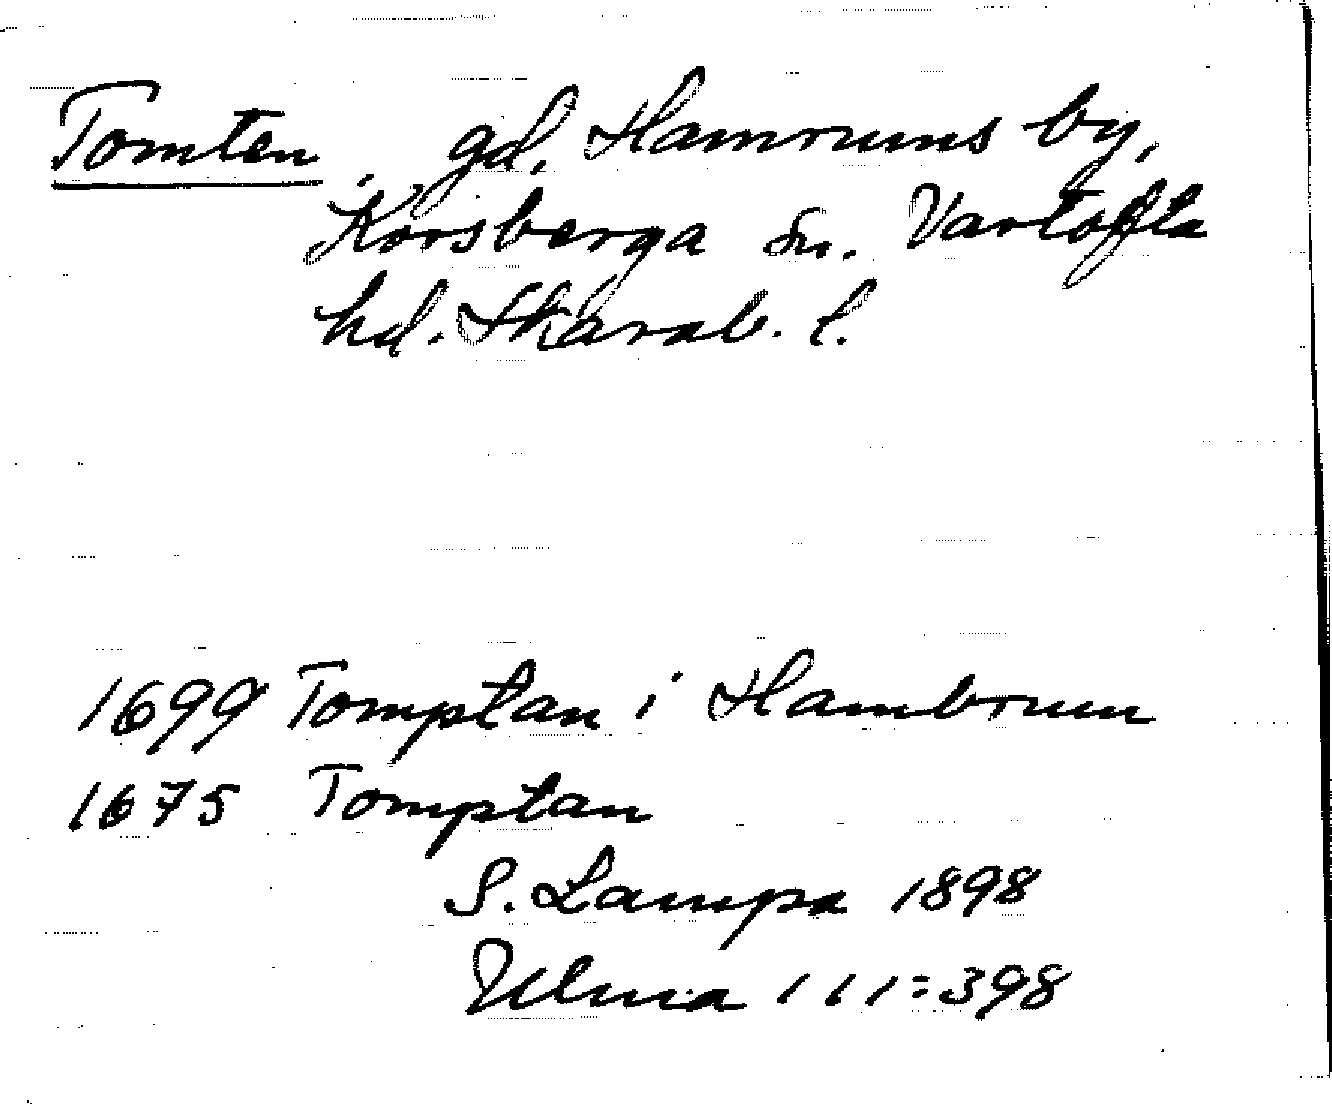 Tomten, gd. Hamrums by,
Korsberga sn. Vartofta
hd. Skarab. l.
1699 Tomptan i Hambrum
1675 Tomptan
S. Lampa 1898
Ulma 111:398